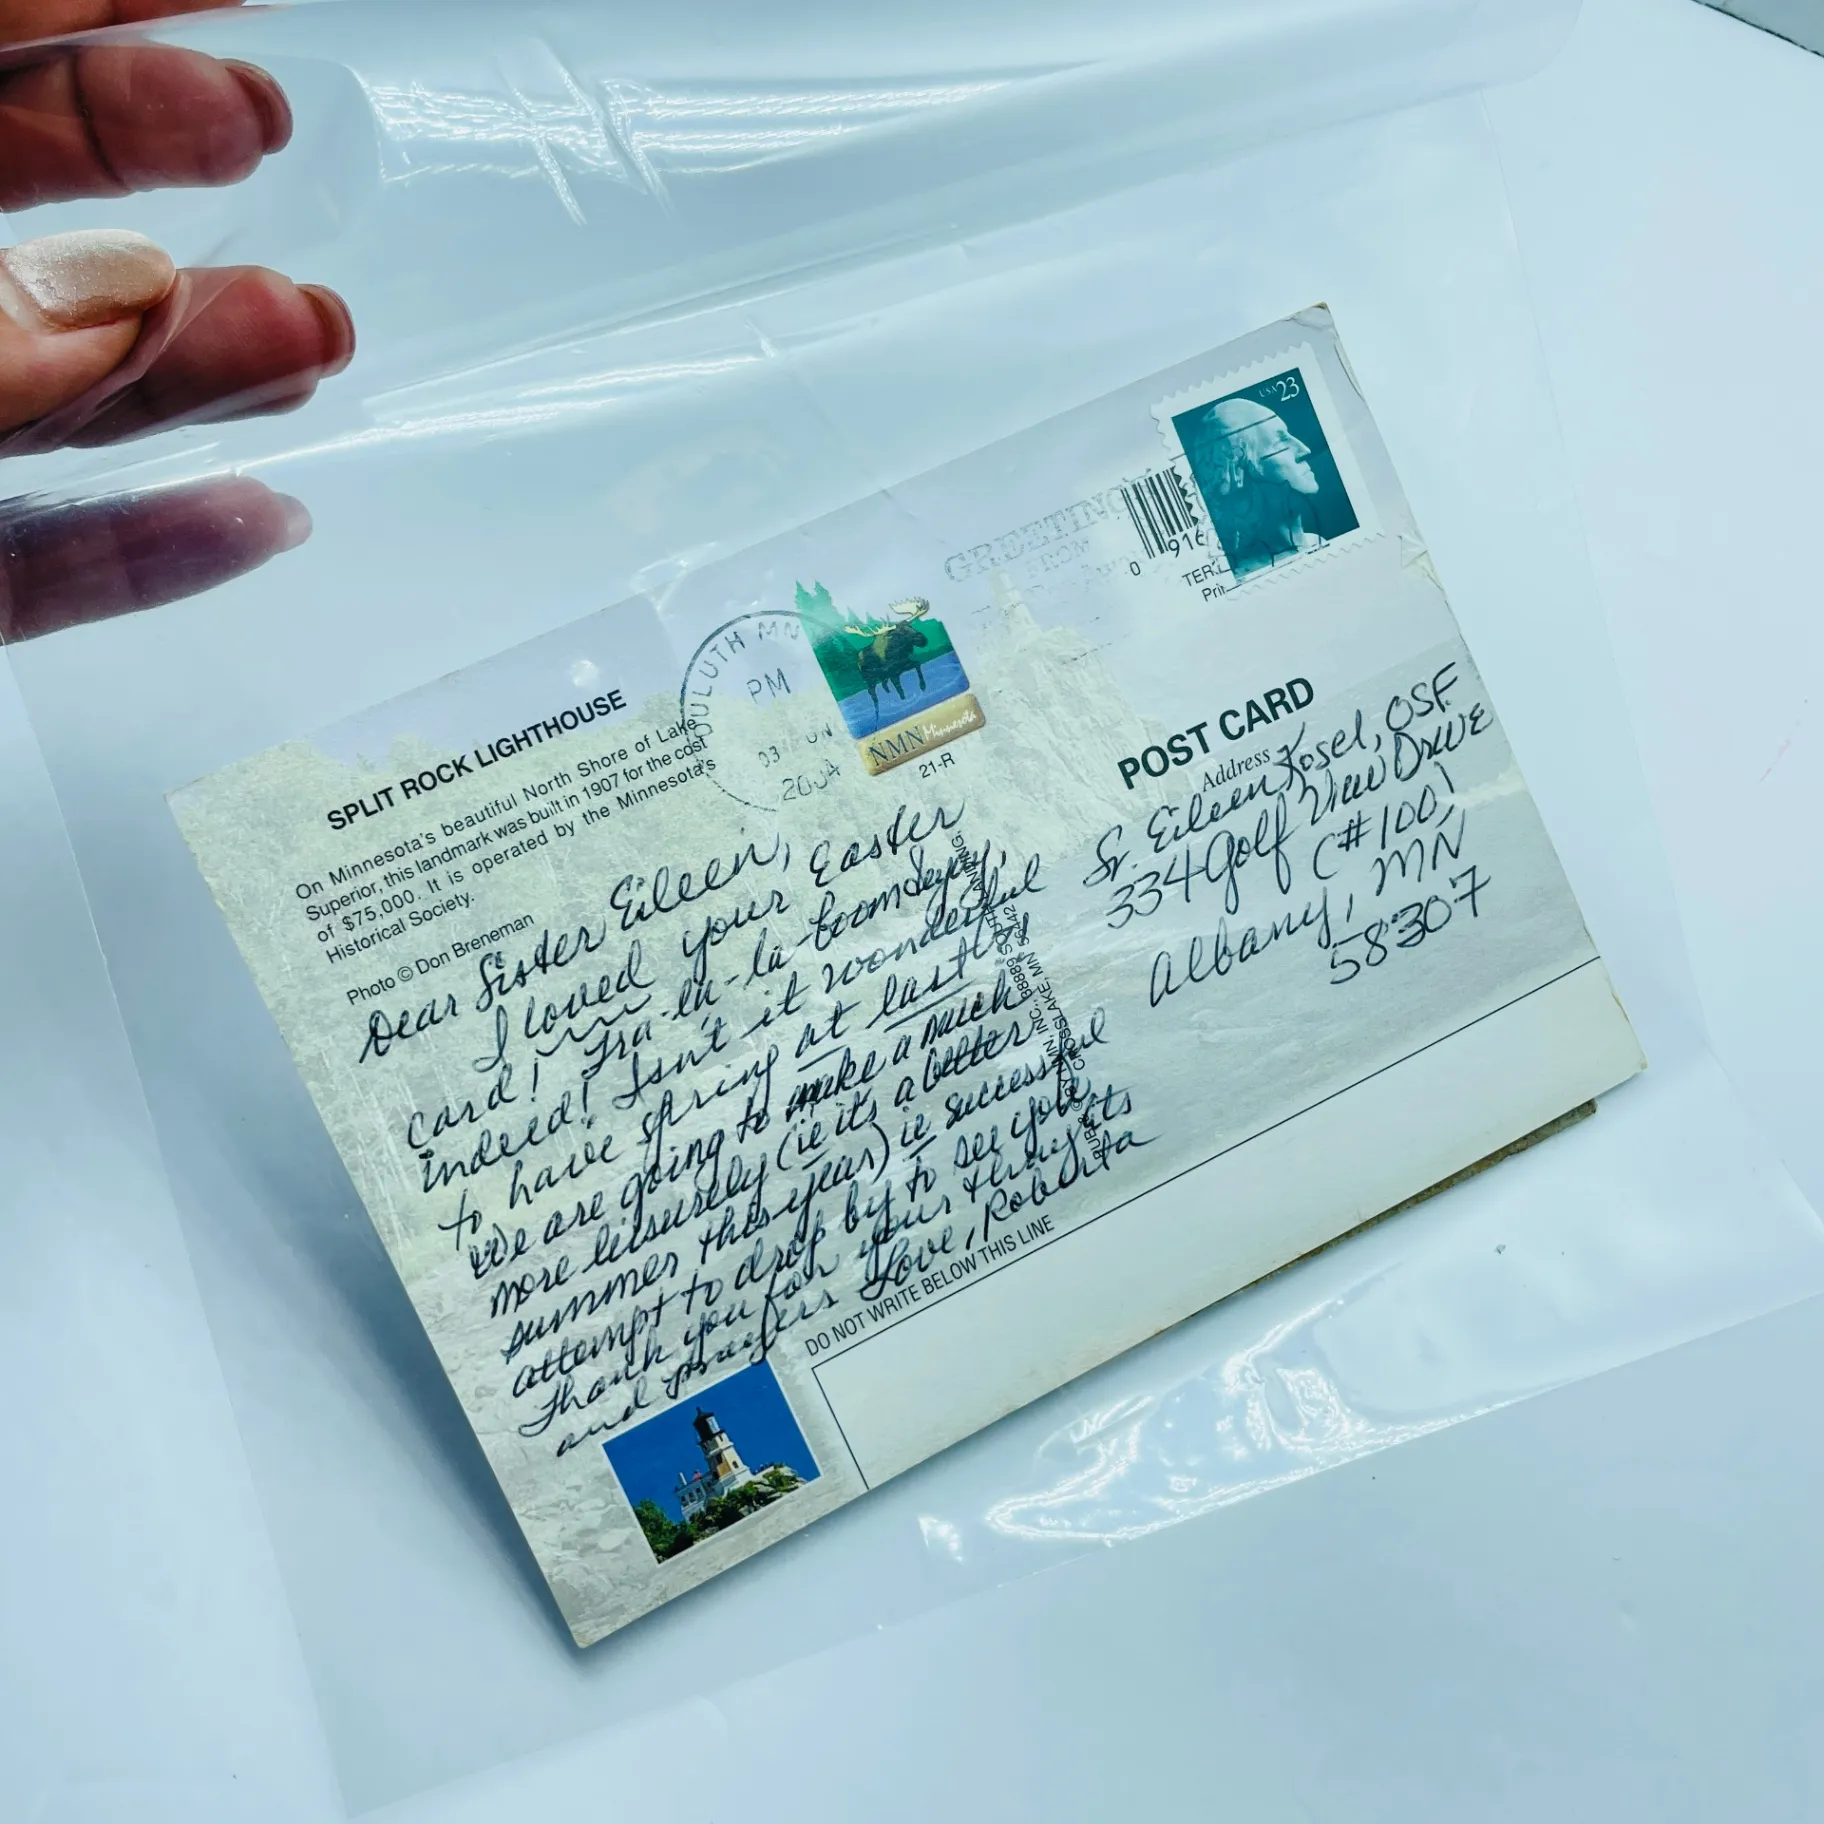 SPLIT ROCK LIGHTHOUSE
On Minnesota's beautiful North Shore of Lake
Superior, this landmark was built in 1907 for the cost
of $75,000. It is operated by the Minnesota's
Historical Society.
Photo © Don Breneman
DULUTH MN
PM
03
2004
NMN Minnesota
21-R
GREETING
FROM
0 916
USA 23
POST CARD
Address
Sr. Eileen Kosel, OSF
334 Golf View Drive
C#100
Albany, MN
58307
Dear Sister Eileen,
I loved your Easter
card! Tra-la-la-boomdeyay,
indeed! Isn't it wonderful
to have spring at last
We are going to make a much
more leisurely (ie it's a better
summer this year) ie successful
attempt to drop by to see you
Thank you for your thoughts
and prayers Love, Roberta
CROSSLAKE, MN 56442
DO NOT WRITE BELOW THIS LINE